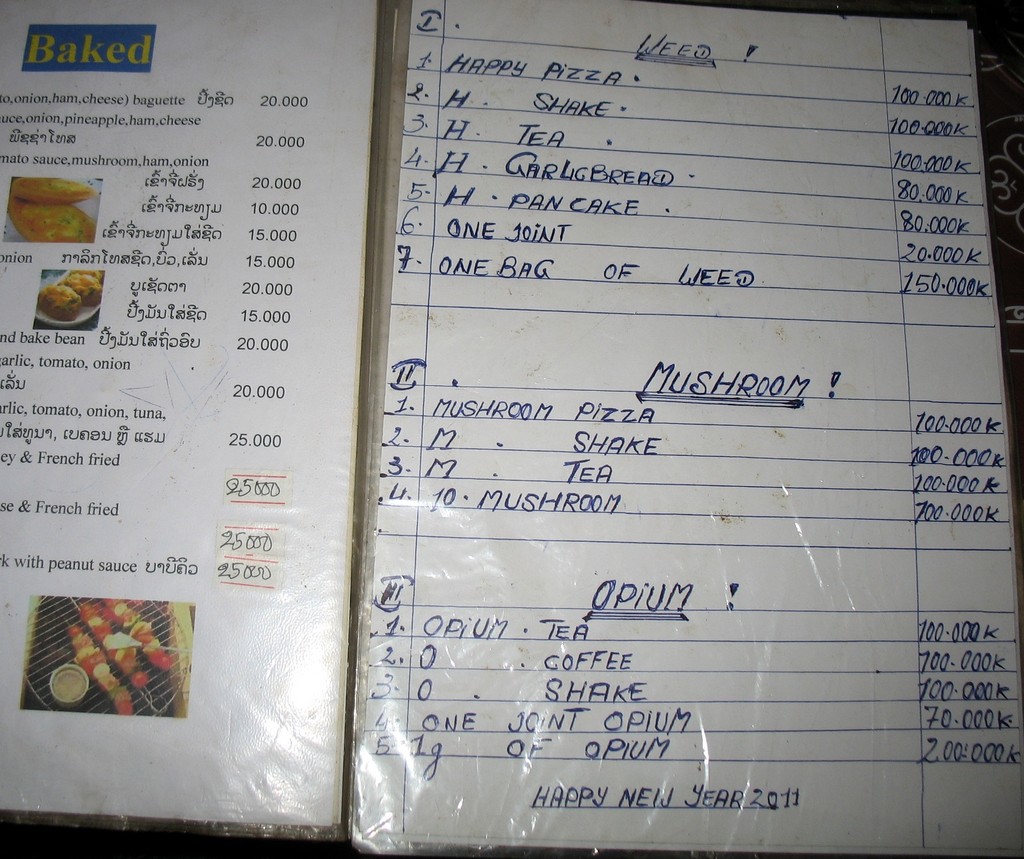 Baked
to,onion,ham,cheese) baguette ປີ້ງຊີດ 20.000
uce,onion,pineapple,ham,cheese
ພີຊຊ່າໂທສ 20.000
mato sauce,mushroom,ham,onion
ເຂົ້າຈີ່ຝຣັ່ງ 20.000
ເຂົ້າຈີ່ກະທຽມ 10.000
ເຂົ້າຈີ່ກະທຽມໃສ່ຊີດ 15.000
onion ກາລິກໂທສຊີດ,ບົ່ວ,ເລັ່ນ 15.000
ບູເຊັດຕາ 20.000
ປີ້ງມັນໃສ່ຊີດ 15.000
nd bake bean ປີ້ງມັນໃສ່ຖົ່ວອົບ 20.000
garlic, tomato, onion
ເລັ່ນ 20.000
arlic, tomato, onion, tuna,
ໃສ່ທູນາ, ເບຄອນ ຫຼື ແຮມ 25.000
ey & French fried
25000
se & French fried
25000
rk with peanut sauce ບາບີຄິວ 25000
I . WEED !
1. HAPPY PIZZA . 100.000K
2. H . SHAKE . 100.000K
3. H . TEA . 100.000K
4. H . GARLICBREAD . 80.000K
5. H . PANCAKE . 80.000K
6. ONE JOINT 20.000K
7. ONE BAG OF WEED 150.000K
II . MUSHROOM !
1. MUSHROOM PIZZA 100.000K
2. M . SHAKE 100.000K
3. M . TEA 100.000K
4. 10. MUSHROOM 100.000K
III OPIUM !
1. OPIUM . TEA 100.000K
2. O . COFFEE 100.000K
3. O . SHAKE 100.000K
4. ONE JOINT OPIUM 70.000K
5. 1g OF OPIUM 200.000K
HAPPY NEW YEAR 2011